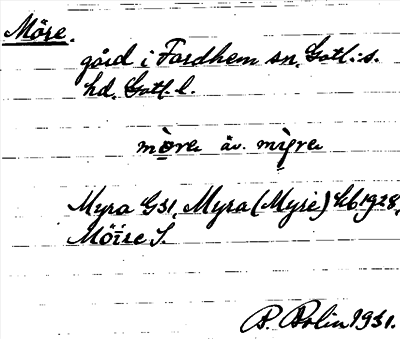 Möre.
gård i Fardhem sn, Gotl:s.
hd, Gotl. l.
mòre äv. mìgre
Myra G31, Myra (Myrè) hb 1928,
Möire S.
B. Bolin 1931.